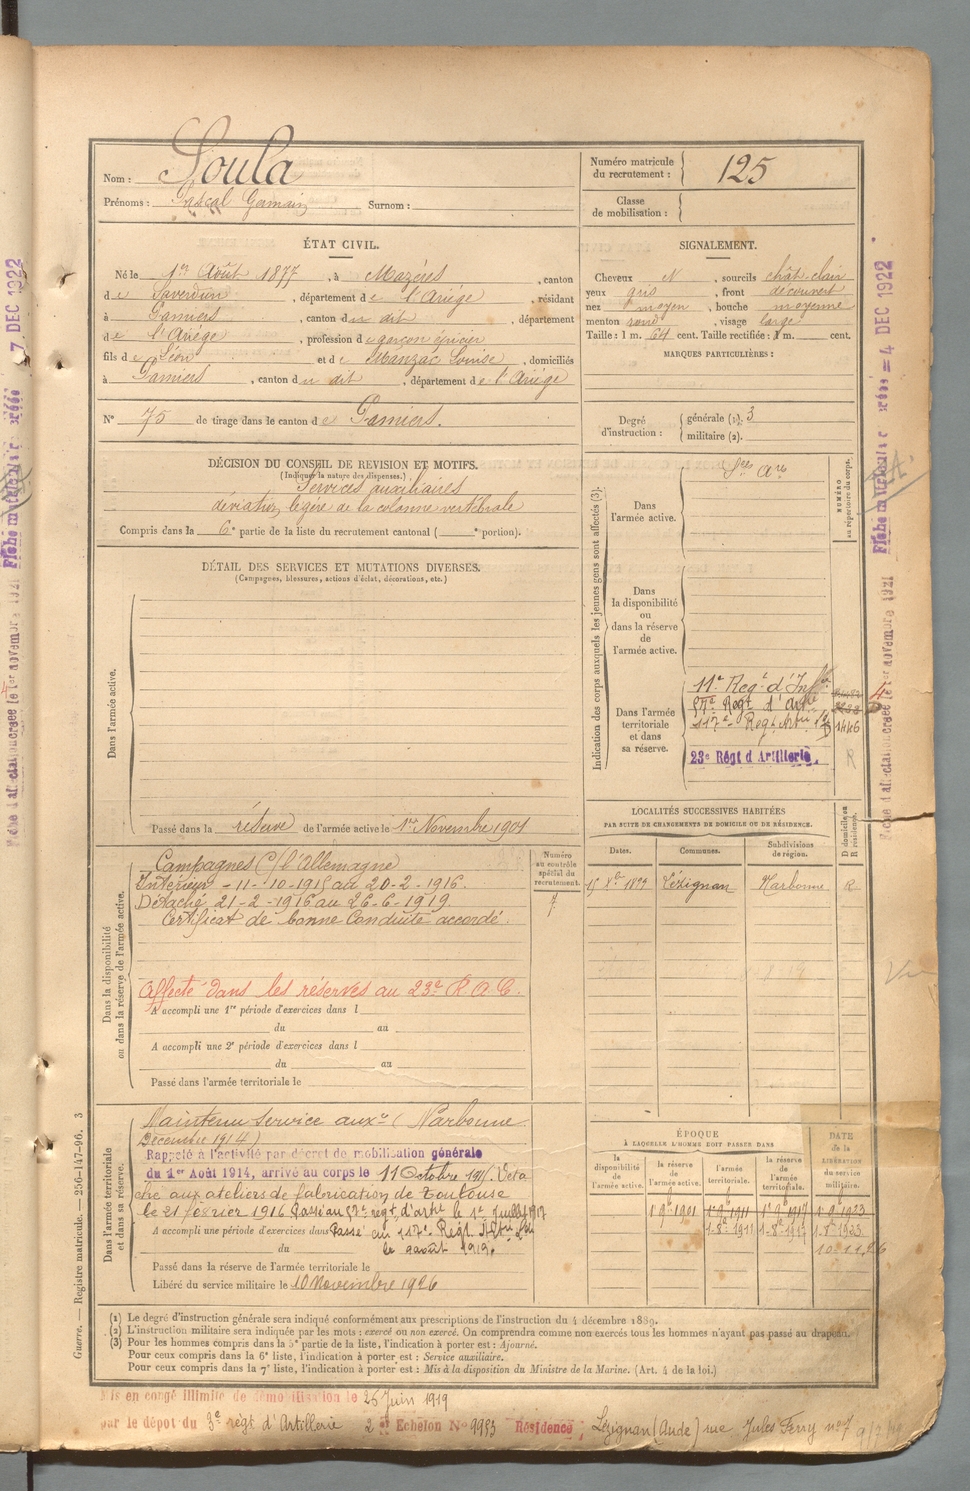 Nom : Soula
Prénoms : Pascal Germain Surnom :
Numéro matricule du recrutement : 125
Classe de mobilisation :
ÉTAT CIVIL.
Né le 1er Août 1877, à Mazères, canton
de Saverdun, département de l'Ariége, résidant
à Pamiers, canton du dit, département
de l'Ariége, profession de garçon épicier
fils de Léon et de Manzac Louise, domiciliés
à Pamiers, canton du dit, département de l'Ariége
N° 75 de tirage dans le canton de Pamiers.
SIGNALEMENT.
Cheveux N, sourcils chât-clair
yeux gris, front découvert
nez moyen, bouche moyenne
menton rond, visage large
Taille : 1 m. 64 cent. Taille rectifiée : 1 m. cent.
MARQUES PARTICULIÈRES :
Degré d'instruction : générale (1). 3
militaire (2).
DÉCISION DU CONSEIL DE REVISION ET MOTIFS.
(Indiquer la nature des dispenses.)
Services auxiliaires
déviation légère de la colonne vertébrale
Compris dans la 6e partie de la liste du recrutement cantonal ( e portion).
DÉTAIL DES SERVICES ET MUTATIONS DIVERSES.
(Campagnes, blessures, actions d'éclat, décorations, etc.)
Dans l'armée active.
Passé dans la réserve de l'armée active le 1er Novembre 1901
Indication des corps auxquels les jeunes gens sont affectés (3).
NUMÉRO au répertoire du corps.
Dans l'armée active.
Dans la disponibilité ou dans la réserve de l'armée active.
Dans l'armée territoriale et dans sa réserve.
11e Regt d'Infie
57e Regt d'Artie
117e Regt Artie 1446
23e Régt d'Artillerie.
LOCALITÉS SUCCESSIVES HABITÉES
PAR SUITE DE CHANGEMENTS DE DOMICILE OU DE RÉSIDENCE.
D domicile ou R résidence.
Dates. Communes. Subdivisions de région.
1899 Lézignan Narbonne R
Dans la disponibilité ou dans la réserve de l'armée active.
Numéro au contrôle spécial du recrutement.
7
Campagnes C/ l'Allemagne
Intérieur - 11-10-1915 au 20-2-1916.
Détaché 21-2-1916 au 26-6-1919.
Certificat de bonne Conduite accordé.
Affecté dans les réserves au 23e R.A.C.
A accompli une 1re période d'exercices dans l
du au
A accompli une 2e période d'exercices dans l
du au
Passé dans l'armée territoriale le
Dans l'armée territoriale et dans sa réserve.
Maintenu service auxre (Narbonne
Décembre 1914)
Rappelé à l'activité par décret de mobilisation générale
du 1er Août 1914, arrivé au corps le 11 Octobre 1915. Déta
ché aux ateliers de fabrication de Toulouse
le 21 février 1916 Passé au 57e régt d'artie le 1er Juillet 1917
A accompli une période d'exercices dans Passé au 117e Régt Artie
du le août 1919.
Passé dans la réserve de l'armée territoriale le
Libéré du service militaire le 10 Novembre 1926
ÉPOQUE
À LAQUELLE L'HOMME DOIT PASSER DANS
la disponibilité de l'armée active. la réserve de l'armée active. l'armée territoriale. la réserve de l'armée territoriale. DATE de la LIBÉRATION du service militaire.
1-9bre 1901 1-9bre 1911 1-9bre 1917 1-9bre 1923
1-8bre 1911 1-8bre 1917 1-8bre 1923
10-11-26
(1) Le degré d'instruction générale sera indiqué conformément aux prescriptions de l'instruction du 4 décembre 1889.
(2) L'instruction militaire sera indiquée par les mots : exercé ou non exercé. On comprendra comme non exercés tous les hommes n'ayant pas passé au drapeau.
(3) Pour les hommes compris dans la 5e partie de la liste, l'indication à porter est : Ajourné.
Pour ceux compris dans la 6e liste, l'indication à porter est : Service auxiliaire.
Pour ceux compris dans la 7e liste, l'indication à porter est : Mis à la disposition du Ministre de la Marine. (Art. 4 de la loi.)
Mis en congé illimité de démobilisation le 25 Juin 1919
par le dépôt du 3e régt d'Artillerie 2 Echelon N° 9953 Résidence : Lézignan (Aude) rue Jules Ferry n° 7
Guerre. — Registre matricule. — 256-147-96. 3
Fiche matricule créée = 4 DEC 1922
Fiche d'affectation créée le 1er novembre 1921